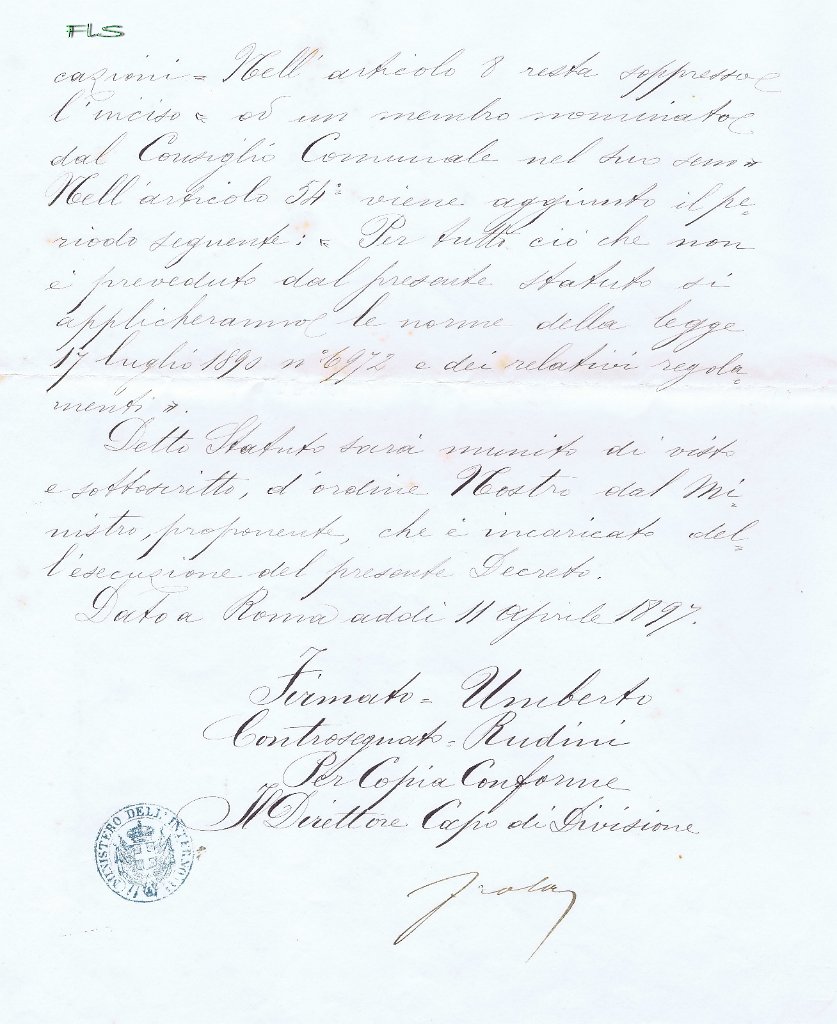 FLS
cazioni = Nell'articolo 8 resta soppresso
l'inciso « od un membro nominato
dal Consiglio Comunale nel suo seno »
Nell'articolo 54° viene aggiunto il pe-
riodo seguente: « Per tutto ciò che non
è preveduto dal presente statuto si
applicheranno le norme della legge
17 luglio 1890 n° 6972 e dei relativi regola-
menti ».
Detto Statuto sarà munito di visto
e sottoscritto, d'ordine Nostro dal Mi-
nistro, proponente, che è incaricato del-
l'esecuzione del presente Decreto.
Dato a Roma addì 11 Aprile 1897.
Firmato = Umberto
Controsegnato = Rudinì
Per Copia Conforme
Il Direttore Capo di Divisione
MINISTERO DELL'INTERNO